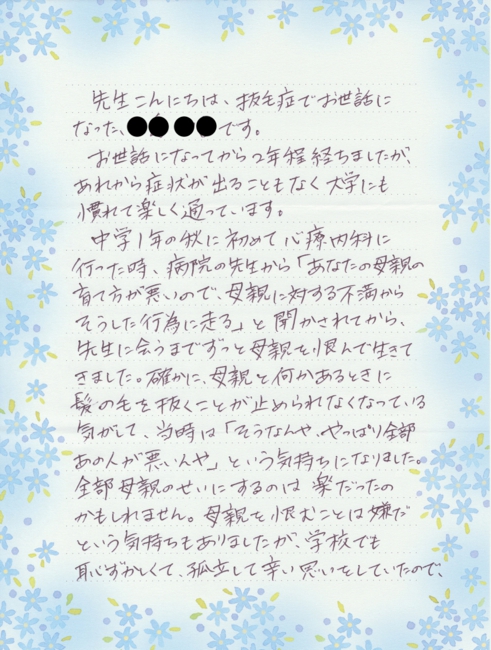 先生こんにちは、抜毛症でお世話に
なった、●●●●です。
お世話になってから2年程経ちましたが、
あれから症状が出ることもなく大学にも
慣れて楽しく通っています。
中学1年の秋に初めて心療内科に
行った時、病院の先生から「あなたの母親の
育て方が悪いので、母親に対する不満から
そうした行為に走る」と聞かされてから、
先生に会うまでずっと母親を恨んで生きて
きました。確かに、母親と何かあるときに
髪の毛を抜くことが止められなくなっている
気がして、当時は「そうなんや、やっぱり全部
あの人が悪いんや」という気持ちになりました。
全部母親のせいにするのは楽だったの
かもしれません。母親を恨むことは嫌だ
という気持ちもありましたが、学校でも
恥ずかしくて、孤立して辛い思いをしていたので、